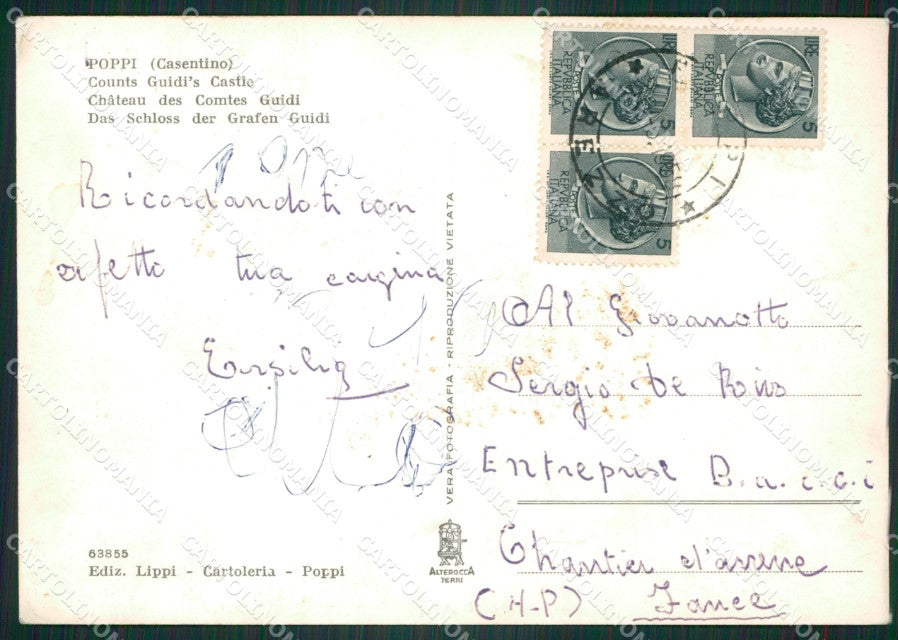 POPPI (Casentino)
Counts Guidi's Castle
Château des Comtes Guidi
Das Schloss der Grafen Guidi
Ricordandoti con
affetto tua cugina
Ersilia
63855
Ediz. Lippi - Cartoleria - Poppi
VERA FOTOGRAFIA - RIPRODUZIONE VIETATA
ALTEROCCA
TERNI
LIRE 5
REPVBBLICA
ITALIANA
LIRE 5
REPVBBLICA
ITALIANA
LIRE 5
REPVBBLICA
ITALIANA
Al Giovanotto
Sergio De
Entreprise B.a.c.c.i
Chantier d'
(H-P) France
CARTOLINOMANIA